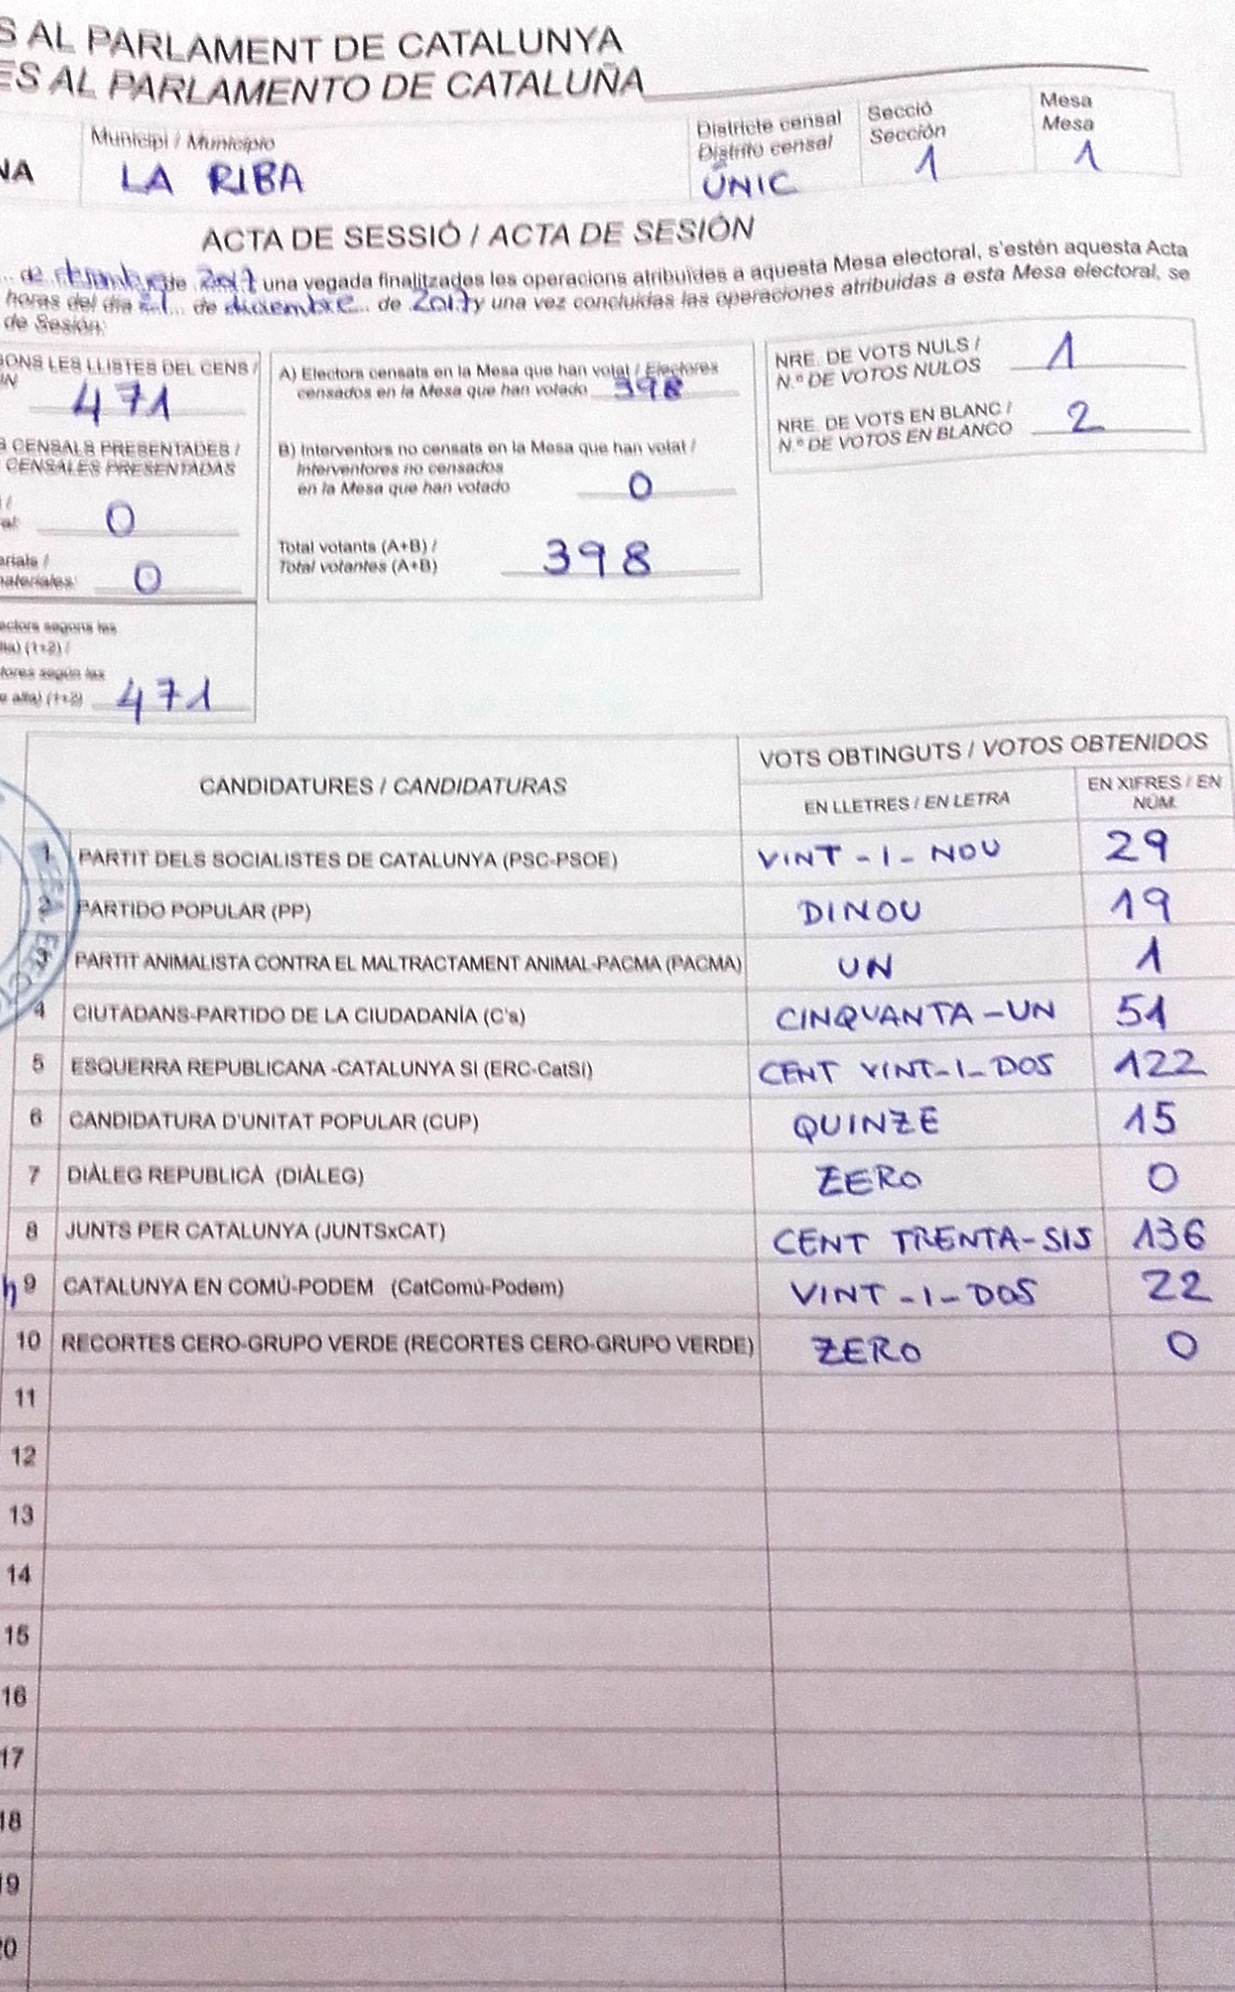 S AL PARLAMENT DE CATALUNYA
ES AL PARLAMENTO DE CATALUÑA
NA
Municipi / Municipio
LA RIBA
Districte censal
Distrito censal
ÚNIC
Secció
Sección
1
Mesa
Mesa
1
ACTA DE SESSIÓ / ACTA DE SESIÓN
... de desembre de 2017 una vegada finalitzades les operacions atribuïdes a aquesta Mesa electoral, s'estén aquesta Acta
horas del día 21 ... de diciembre .. de 2017 y una vez concluidas las operaciones atribuidas a esta Mesa electoral, se
de Sesión:
GONS LES LLISTES DEL CENS /
471
S CENSALS PRESENTADES /
CENSALES PRESENTADAS
0
arials /
materiales:
0
ectors segons les
(1+2) /
tores según las
e alta) (1+2)
471
A) Electors censats en la Mesa que han votat / Electores
censados en la Mesa que han votado 398
B) Interventors no censats en la Mesa que han votat /
Interventores no censados
en la Mesa que han votado 0
Total votants (A+B) /
Total votantes (A+B) 398
NRE. DE VOTS NULS /
N.º DE VOTOS NULOS 1
NRE. DE VOTS EN BLANC /
N.º DE VOTOS EN BLANCO 2
CANDIDATURES / CANDIDATURAS
VOTS OBTINGUTS / VOTOS OBTENIDOS
EN LLETRES / EN LETRA
EN XIFRES / EN
NÚM.
1 PARTIT DELS SOCIALISTES DE CATALUNYA (PSC-PSOE) VINT-I-NOU 29
2 PARTIDO POPULAR (PP) DINOU 19
3 PARTIT ANIMALISTA CONTRA EL MALTRACTAMENT ANIMAL-PACMA (PACMA) UN 1
4 CIUTADANS-PARTIDO DE LA CIUDADANÍA (C's) CINQUANTA-UN 51
5 ESQUERRA REPUBLICANA -CATALUNYA SI (ERC-CatSí) CENT VINT-I-DOS 122
6 CANDIDATURA D'UNITAT POPULAR (CUP) QUINZE 15
7 DIÀLEG REPUBLICÀ (DIÀLEG) ZERO 0
8 JUNTS PER CATALUNYA (JUNTSxCAT) CENT TRENTA-SIS 136
9 CATALUNYA EN COMÚ-PODEM (CatComú-Podem) VINT-I-DOS 22
10 RECORTES CERO-GRUPO VERDE (RECORTES CERO-GRUPO VERDE) ZERO 0
11
12
13
14
15
16
17
18
19
20